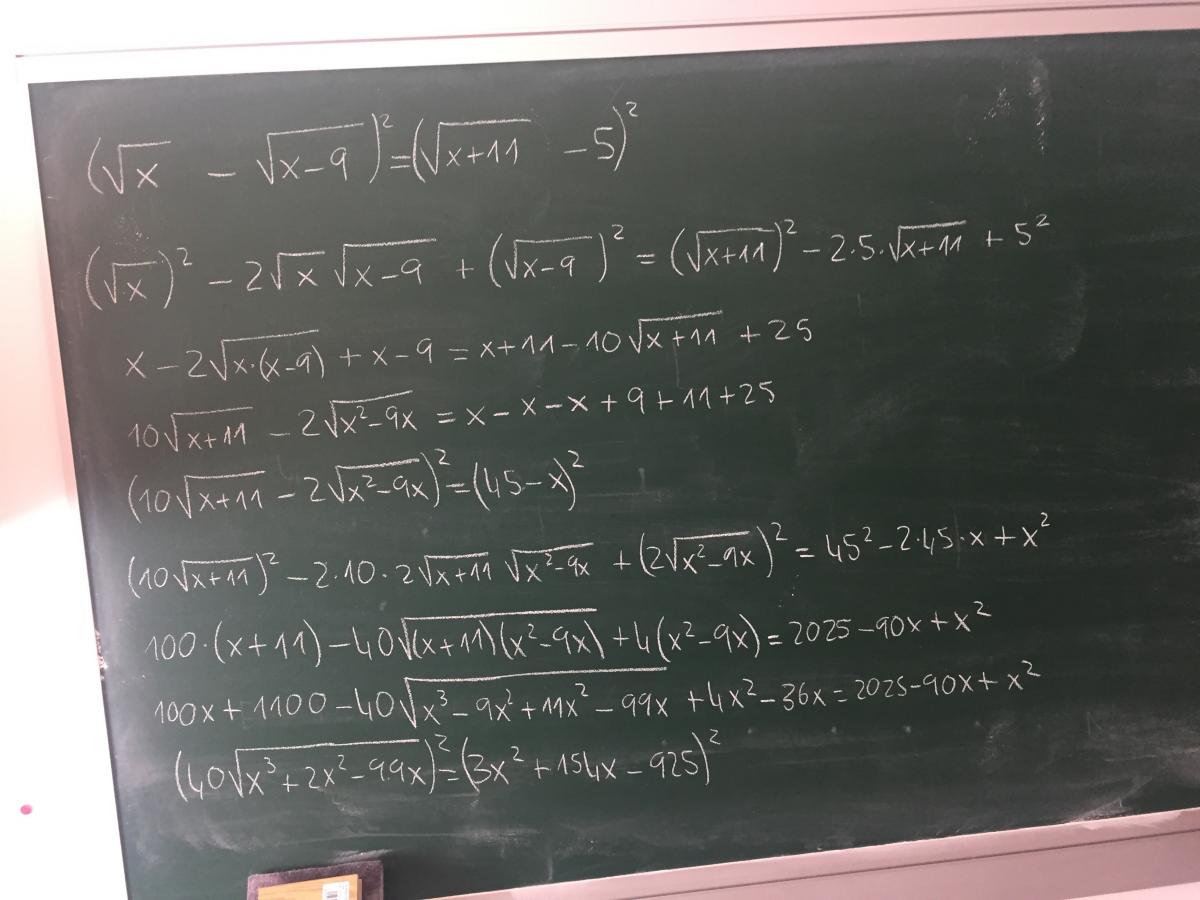 (√x - √(x-9))² = (√(x+11) - 5)²
(√x)² - 2√x √(x-9) + (√(x-9))² = (√(x+11))² - 2·5·√(x+11) + 5²
x - 2√(x·(x-9)) + x - 9 = x + 11 - 10√(x+11) + 25
10√(x+11) - 2√(x²-9x) = x - x - x + 9 + 11 + 25
(10√(x+11) - 2√(x²-9x))² = (45 - x)²
(10√(x+11))² - 2·10·2√(x+11) √(x²-9x) + (2√(x²-9x))² = 45² - 2·45·x + x²
100·(x+11) - 40√((x+11)(x²-9x)) + 4(x²-9x) = 2025 - 90x + x²
100x + 1100 - 40√(x³-9x²+11x²-99x) + 4x² - 36x = 2025 - 90x + x²
(40√(x³+2x²-99x))² = (3x² + 154x - 925)²